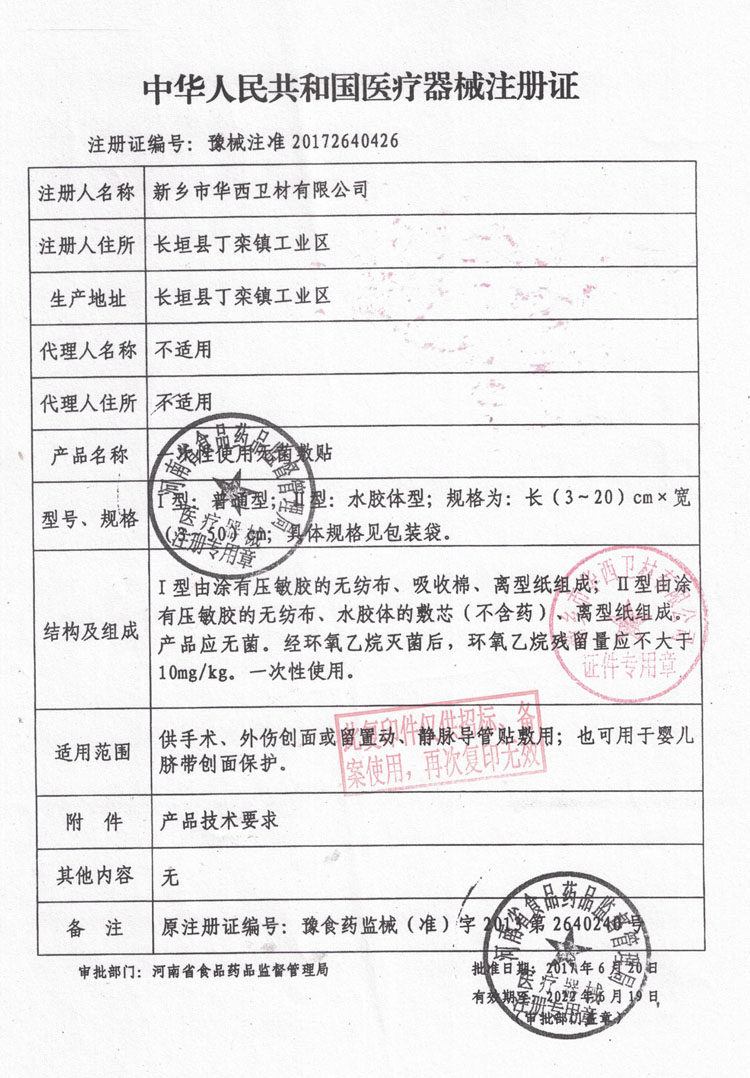 中华人民共和国医疗器械注册证
注册证编号：豫械注准 20172640426
注册人名称 新乡市华西卫材有限公司
注册人住所 长垣县丁栾镇工业区
生产地址 长垣县丁栾镇工业区
代理人名称 不适用
代理人住所 不适用
产品名称 一次性使用无菌敷贴
型号、规格 I 型：普通型；II 型：水胶体型；规格为：长（3～20）cm×宽
（3～50）cm；具体规格见包装袋。
河南省食品药品监督管理局
医疗器械
注册专用章
结构及组成 I 型由涂有压敏胶的无纺布、吸收棉、离型纸组成；II 型由涂
有压敏胶的无纺布、水胶体的敷芯（不含药）、离型纸组成。
产品应无菌。经环氧乙烷灭菌后，环氧乙烷残留量应不大于
10mg/kg。一次性使用。
新乡市华西卫材有限公司
证件专用章
适用范围 供手术、外伤创面或留置动、静脉导管贴敷用；也可用于婴儿
脐带创面保护。
此复印件仅供招标、备
案使用，再次复印无效
附 件 产品技术要求
其他内容 无
备 注 原注册证编号：豫食药监械（准）字 201 第 2640240 号
审批部门：河南省食品药品监督管理局
批准日期：2017 年 6 月 20 日
有效期至：2022 年 6 月 19 日
（审批部门盖章）
河南省食品药品监督管理局
医疗器械
注册专用章